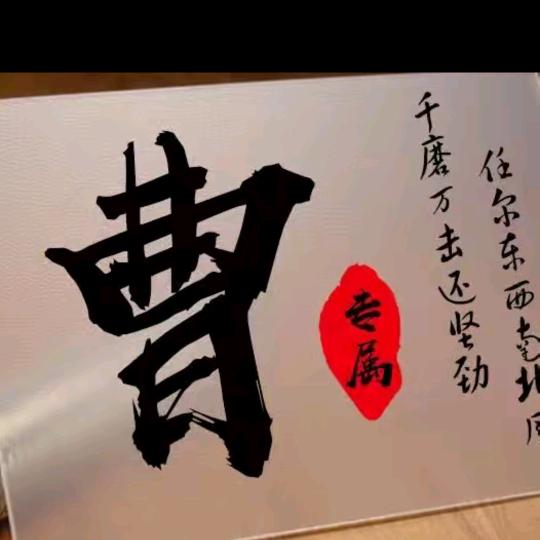 曹
专属
千磨万击还坚劲
任尔东西南北风